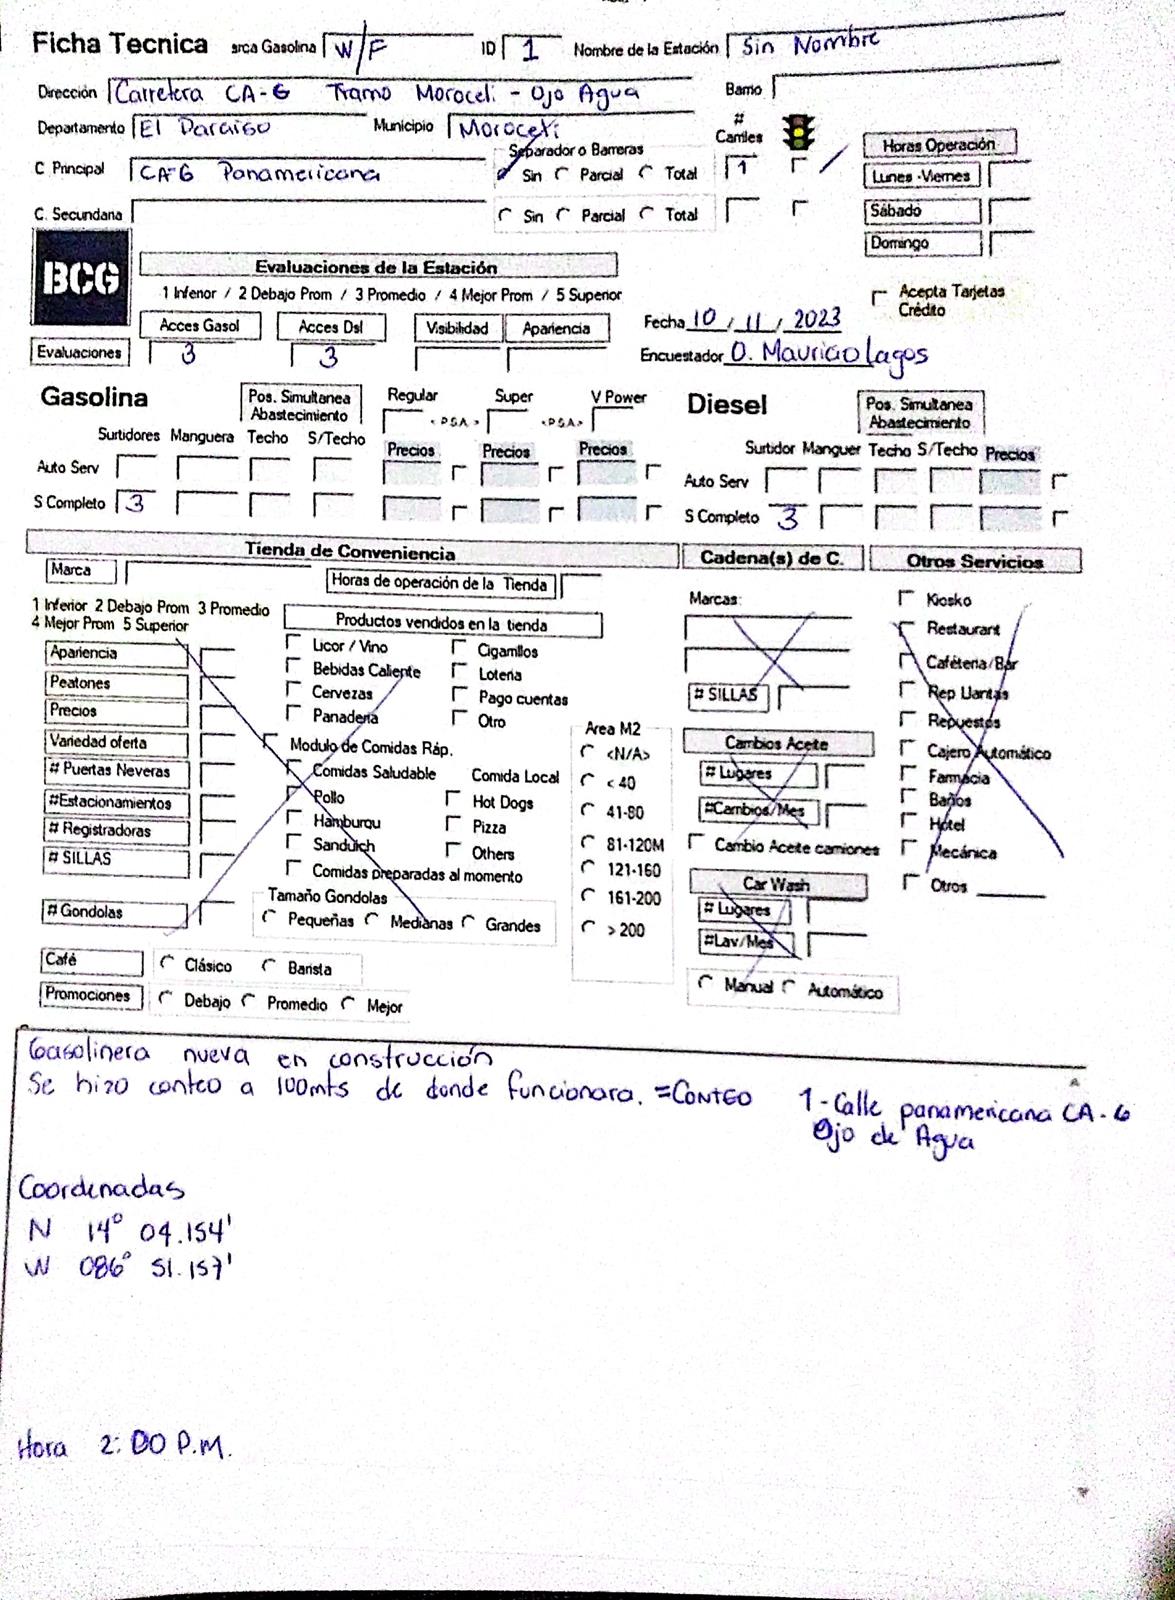 Ficha Tecnica arca Gasolina W/F ID 1 Nombre de la Estación Sin Nombre
Dirección Carretera CA-6 Tramo Moroceli - Ojo Agua Barrio
Departamento El Paraiso Municipio Moroceli # Carriles
Separador o Barreras Horas Operación
C Principal CA-6 Panamericana Sin Parcial Total 1 Lunes -Viernes
C. Secundaria Sin Parcial Total Sábado
Domingo
BCG Evaluaciones de la Estación
1 Inferior / 2 Debajo Prom / 3 Promedio / 4 Mejor Prom / 5 Superior
Acepta Tarjetas Crédito
Acces Gasol Acces Dsl Visibilidad Apariencia Fecha 10 / 11 / 2023
Evaluaciones 3 3 Encuestador O. Mauricio Lagos
Gasolina Pos. Simultanea Abastecimiento Regular Super V Power Diesel Pos. Simultanea Abastecimiento
<PSA> <PSA>
Surtidores Manguera Techo S/Techo Precios Precios Precios Surtidor Manguer Techo S/Techo Precios
Auto Serv Auto Serv
S Completo 3 S Completo 3
Tienda de Conveniencia Cadena(s) de C. Otros Servicios
Marca Horas de operación de la Tienda
1 Inferior 2 Debajo Prom 3 Promedio
4 Mejor Prom 5 Superior
Productos vendidos en la tienda
Apariencia
Peatones
Precios
Variedad oferta
# Puertas Neveras
#Estacionamientos
# Registradoras
# SILLAS
# Gondolas
Licor / Vino Cigarrillos
Bebidas Caliente Loteria
Cervezas Pago cuentas
Panaderia Otro
Modulo de Comidas Ráp.
Comidas Saludable Comida Local
Pollo Hot Dogs
Hamburqu Pizza
Sanduich Others
Comidas preparadas al momento
Tamaño Gondolas
Pequeñas Medianas Grandes
Area M2
<N/A>
< 40
41-80
81-120M
121-160
161-200
> 200
Marcas:
# SILLAS
Cambios Aceite
# Lugares
#Cambios/Mes
Cambio Aceite camiones
Car Wash
# Lugares
#Lav/Mes
Manual Automático
Kiosko
Restaurant
Caféteria/Bar
Rep Llantas
Repuestos
Cajero Automático
Farmacia
Baños
Hotel
Mecánica
Otros
Café Clásico Barista
Promociones Debajo Promedio Mejor
Gasolinera nueva en construcción
Se hizo conteo a 100mts de donde funcionara. =CONTEO 1-Calle panamericana CA-6
Ojo de Agua
Coordenadas
N 14° 04.154'
W 086° 51.157'
Hora 2:00 P.M.